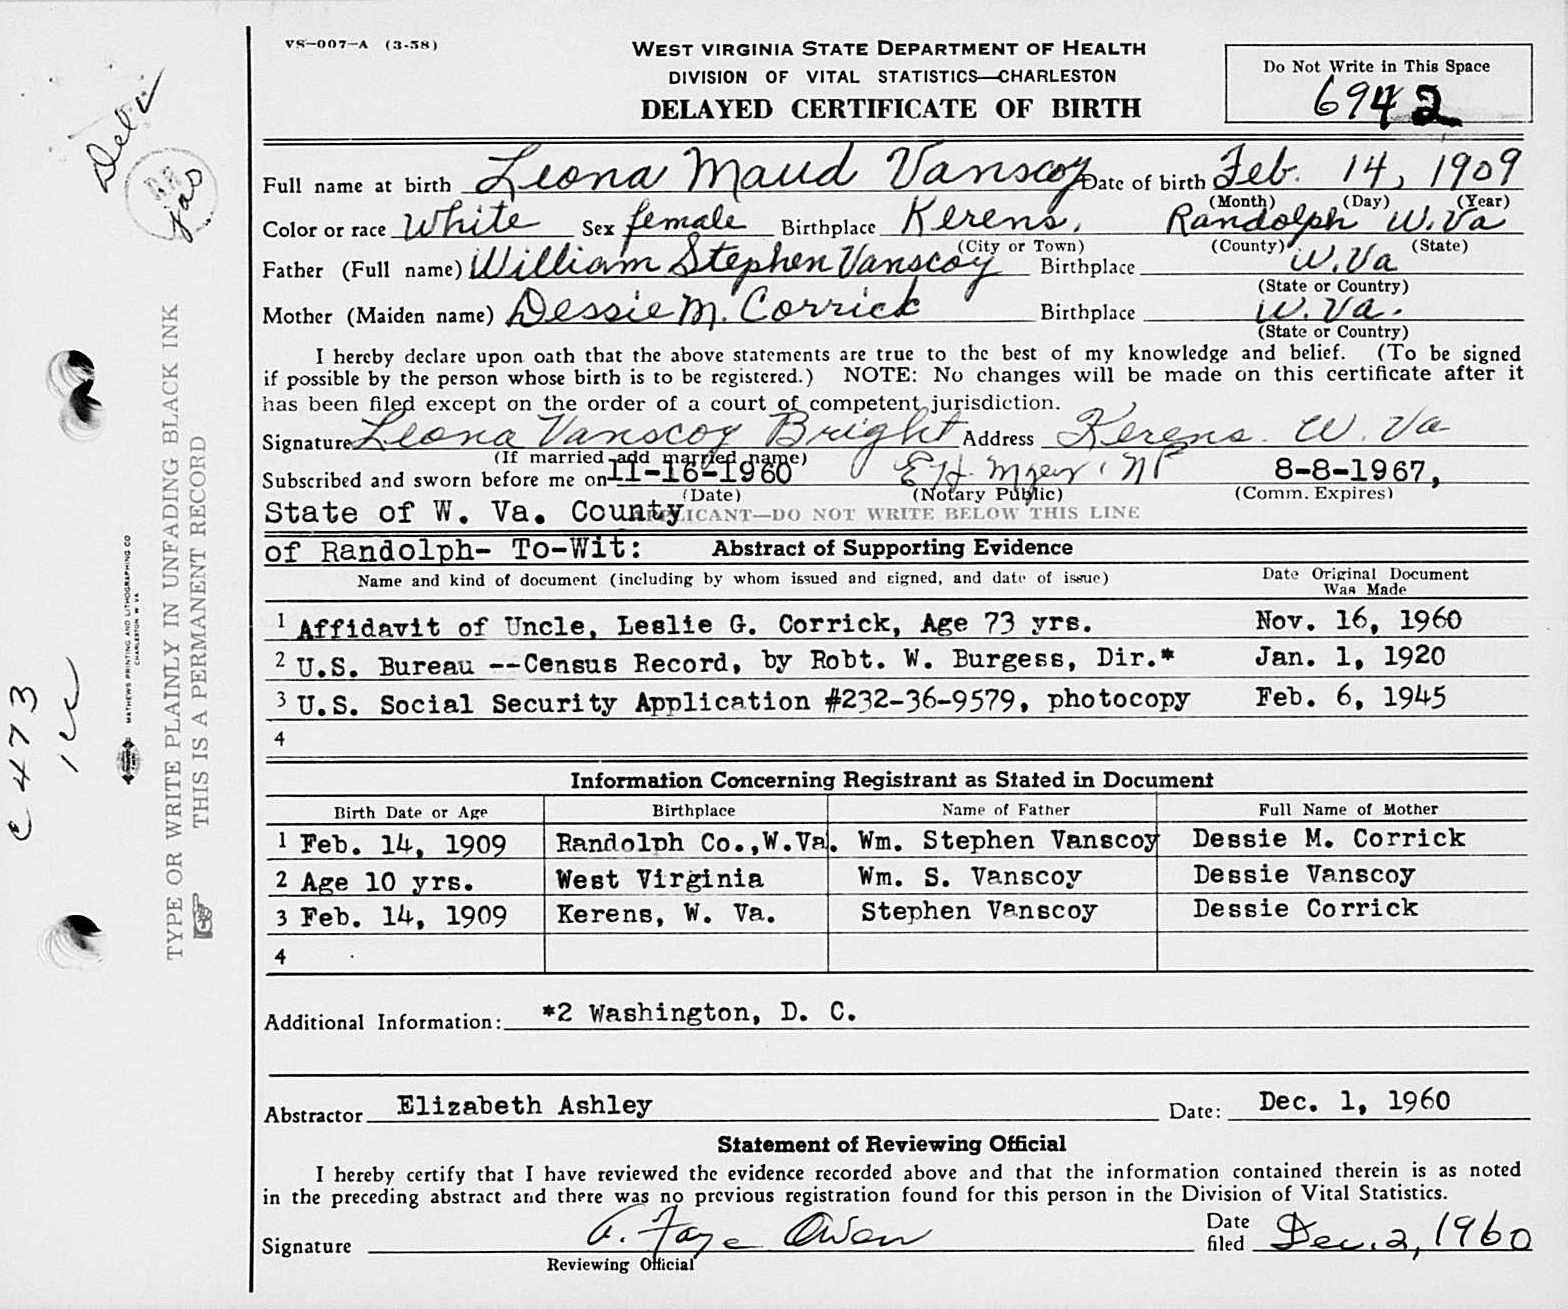 VS-007-A (3-58)
WEST VIRGINIA STATE DEPARTMENT OF HEALTH
DIVISION OF VITAL STATISTICS—CHARLESTON
DELAYED CERTIFICATE OF BIRTH
Do Not Write in This Space
6942
Full name at birth Leona Maud Vanscoy Date of birth Feb. 14, 1909
(Month) (Day) (Year)
Color or race White Sex female Birthplace Kerens, Randolph W. Va
(City or Town) (County) (State)
Father (Full name) William Stephen Vanscoy Birthplace W. Va
(State or Country)
Mother (Maiden name) Dessie M. Corrick Birthplace W. Va.
(State or Country)
I hereby declare upon oath that the above statements are true to the best of my knowledge and belief. (To be signed
if possible by the person whose birth is to be registered.) NOTE: No changes will be made on this certificate after it
has been filed except on the order of a court of competent jurisdiction.
Signature Leona Vanscoy Bright Address Kerens. W. Va
(If married add married name)
Subscribed and sworn before me on 11-16-1960 E H. Myers, NP 8-8-1967,
(Date) (Notary Public) (Comm. Expires)
State of W. Va. County
APPLICANT—DO NOT WRITE BELOW THIS LINE
of Randolph- To-Wit: Abstract of Supporting Evidence
Name and kind of document (including by whom issued and signed, and date of issue) Date Original Document
Was Made
1 Affidavit of Uncle, Leslie G. Corrick, Age 73 yrs. Nov. 16, 1960
2 U.S. Bureau --Census Record, by Robt. W. Burgess, Dir.* Jan. 1, 1920
3 U.S. Social Security Application #232-36-9579, photocopy Feb. 6, 1945
4
Information Concerning Registrant as Stated in Document
Birth Date or Age Birthplace Name of Father Full Name of Mother
1 Feb. 14, 1909 Randolph Co.,W.Va. Wm. Stephen Vanscoy Dessie M. Corrick
2 Age 10 yrs. West Virginia Wm. S. Vanscoy Dessie Vanscoy
3 Feb. 14, 1909 Kerens, W. Va. Stephen Vanscoy Dessie Corrick
4
Additional Information: *2 Washington, D. C.
Abstractor Elizabeth Ashley Date: Dec. 1, 1960
Statement of Reviewing Official
I hereby certify that I have reviewed the evidence recorded above and that the information contained therein is as noted
in the preceding abstract and there was no previous registration found for this person in the Division of Vital Statistics.
Signature A. Faye Owen Date
filed Dec. 2, 1960
Reviewing Official
TYPE OR WRITE PLAINLY IN UNFADING BLACK INK
THIS IS A PERMANENT RECORD
MATHEWS PRINTING AND LITHOGRAPHING CO
CHARLESTON W VA
C 473